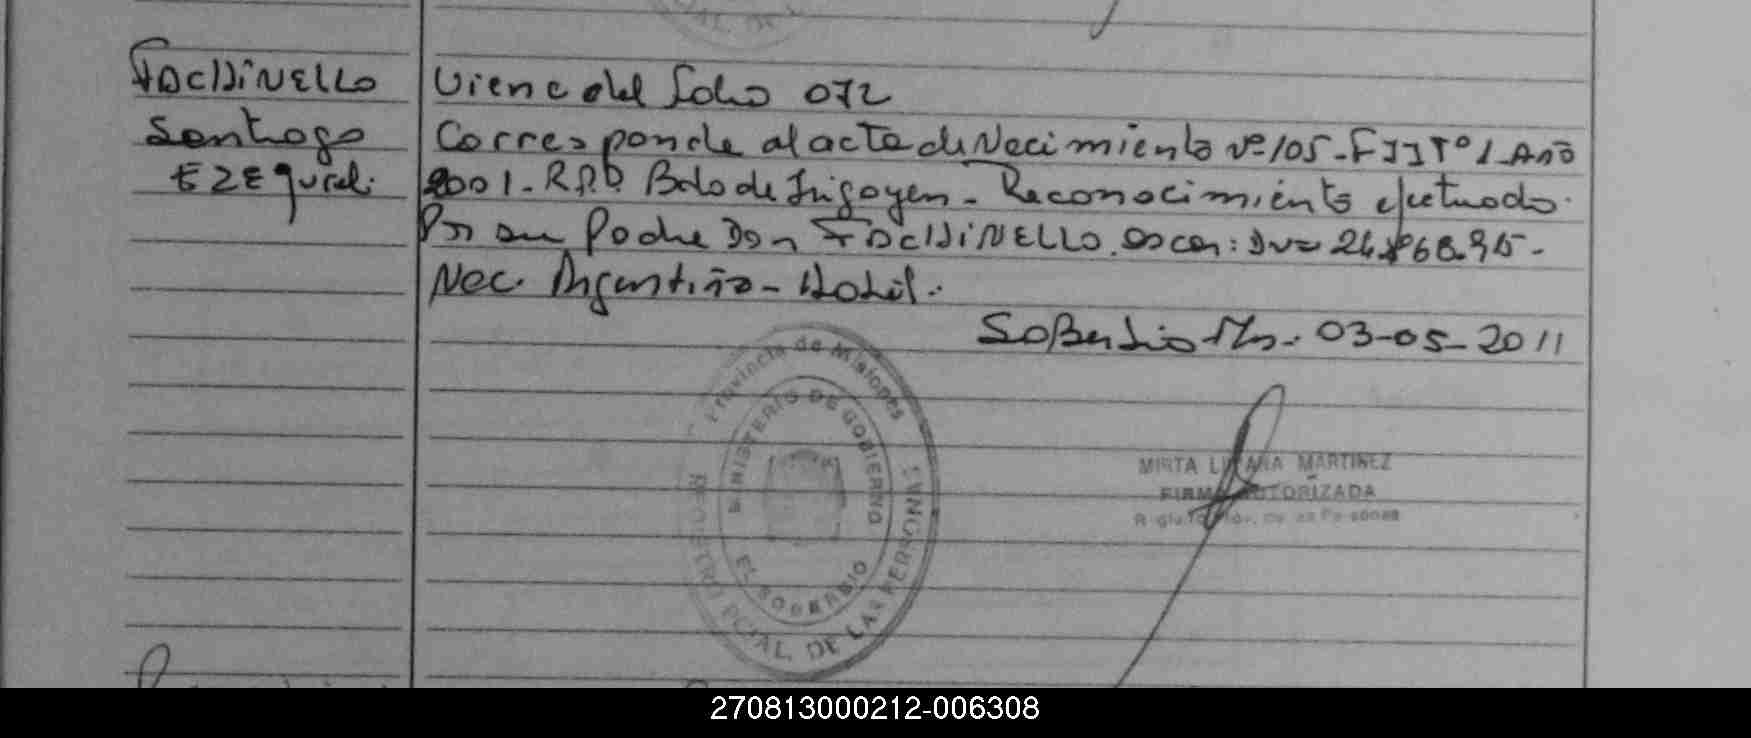 FACHINELLO
Santiago
EZEquiel.
Viene del folio 072
Corresponde al acta de Nacimiento Nº 105 - F JJ Tº 1 Año
2001 - R.P.P Bdo de Irigoyen - Reconocimiento efectuado
Por su Padre Don FACHINELLO Oscar: DNI 24.868.95-
Nac. Argentina - Hábil.
Soberbio Mns. 03-05-2011
Provincia de Misiones
MINISTERIO DE GOBIERNO
EL SOBERBIO
REGISTRO PCIAL. DE LAS PERSONAS
MIRTA LILIANA MARTINEZ
FIRMA AUTORIZADA
de las Personas
270813000212-006308